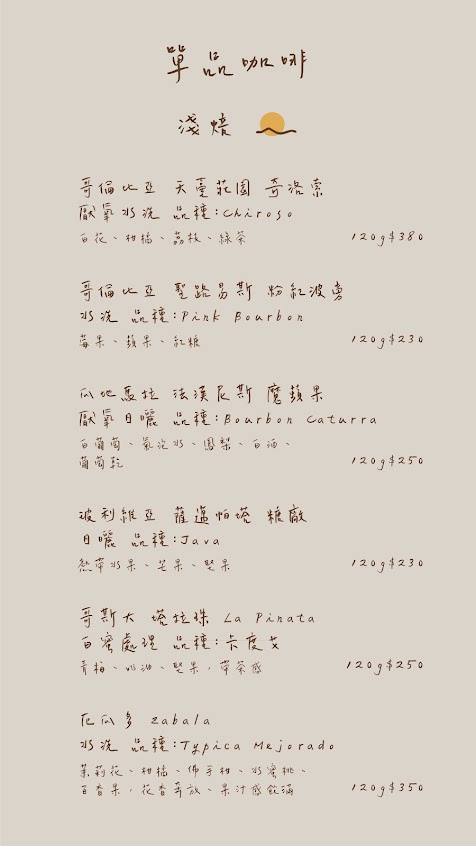 單品咖啡
淺焙
哥倫比亞 天堂莊園 奇洛索
厭氧水洗 品種:Chiroso
白花、柑橘、荔枝、綠茶
120g$380
哥倫比亞 聖路易斯 粉紅波旁
水洗 品種:Pink Bourbon
莓果、蘋果、紅糖
120g$230
瓜地馬拉 法漢尼斯 魔蘋果
厭氧日曬 品種:Bourbon Caturra
白葡萄、氣泡水、鳳梨、白酒、
葡萄乾
120g$250
玻利維亞 薩邁帕塔 糖廠
日曬 品種:Java
熱帶水果、芒果、堅果
120g$230
哥斯大 塔拉珠 La Pinata
白蜜處理 品種:卡度艾
青梅、奶油、堅果,帶茶感
120g$250
厄瓜多 Zabala
水洗 品種:Typica Mejorado
茉莉花、柑橘、佛手柑、水蜜桃、
百香果,花香奔放、果汁感飽滿
120g$350